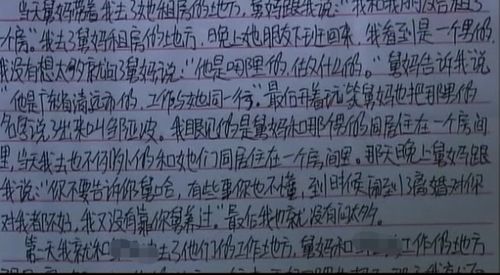 当天舅妈带着我去了她租房的地方,舅妈跟我说:"我和我朋友合租了
一个房。"我去了舅妈租房的地方,晚上她朋友下班回来,我看到是一个男的
我没有想太多就问了舅妈说:"他是哪里的,做什么的。"舅妈告诉我说
"他是广东省清远市的,工作与她同一行。"最后开着玩笑舅妈也把那男的
名字说了出来叫邹阿波。我眼见的是舅妈和那个男的同居住在一个房间
里,当天我去也不例外的和她们同居住在一个房间里。那天晚上舅妈跟
我说:"你不要告诉你舅 有些事你也不懂,到时候闹到了离婚对你
对我都不好,我又没有靠你舅养过。"最后我也就没有问太多。
第二天我就和 去了他们的工作地方,舅妈和 工作的地方